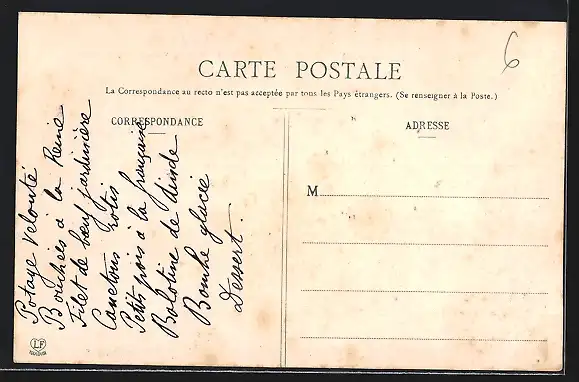 6
CARTE POSTALE
La Correspondance au recto n'est pas acceptée par tous les Pays étrangers. (Se renseigner à la Poste.)
CORRESPONDANCE
ADRESSE
M
Potage Velouté
Bouchées à la Reine
Filet de bœuf jardinière
Canetons rotis
Petits pois à la française
Balotine de dinde
Bombe glacée
Dessert.
LF